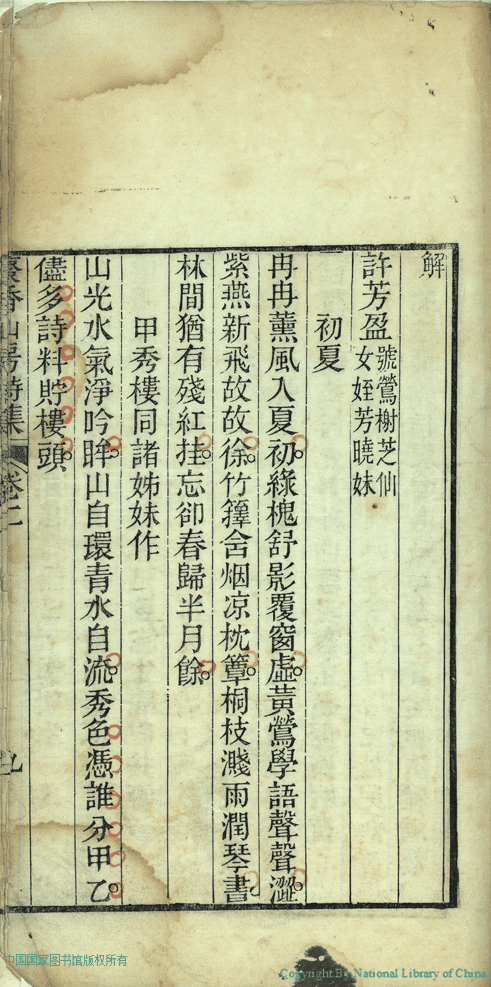 解
許芳盈 號鶯榭芝仙
女姪芳曉妹
初夏
冉冉薰風入夏初。綠槐舒影覆窗虛。黃鶯學語聲聲澀。
紫燕新飛故故徐。竹籜含烟凉枕簟。桐枝濺雨潤琴書。
林間猶有殘紅挂。忘卻春歸半月餘。
甲秀樓同諸姊妹作
山光水氣淨吟眸。山自環青水自流。秀色憑誰分甲乙。
儘多詩料貯樓頭。
香山房詩集 卷二 九
中国国家图书馆版权所有
Copyright By National Library of China